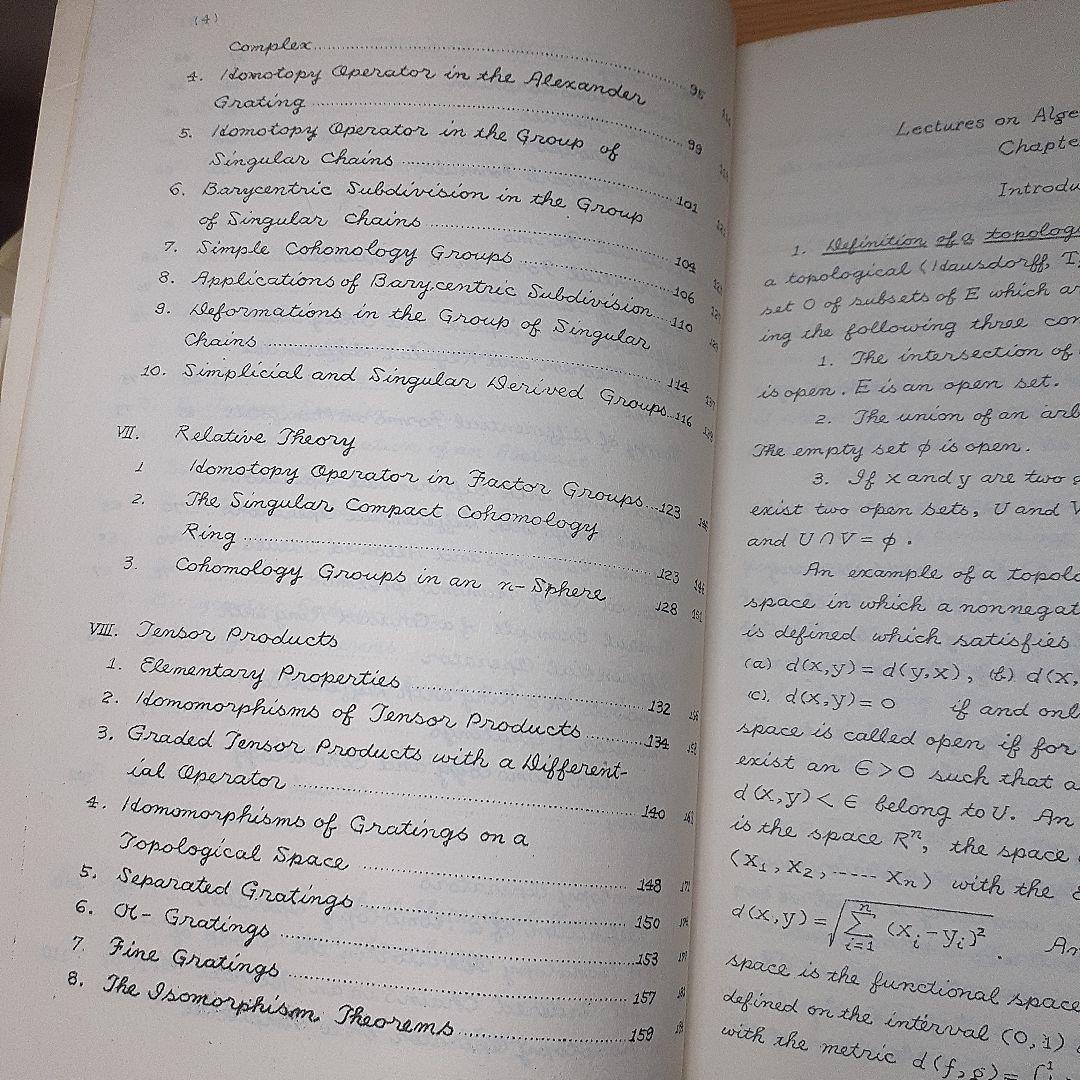 (4)
Complex 95
4. Homotopy Operator in the Alexander
Grating 99
5. Homotopy Operator in the Group of
Singular Chains 101
6. Barycentric Subdivision in the Group
of Singular Chains 104
7. Simple Cohomology Groups 106
8. Applications of Barycentric Subdivision 110
9. Deformations in the Group of Singular
Chains 114
10. Simplicial and Singular Derived Groups 116
VII. Relative Theory
1 Homotopy Operator in Factor Groups 123
2. The Singular Compact Cohomology
Ring 123
3. Cohomology Groups in an n-Sphere 128
VIII. Tensor Products
1. Elementary Properties 132
2. Homomorphisms of Tensor Products 134
3. Graded Tensor Products with a Different-
ial Operator 140
4. Homomorphisms of Gratings on a
Topological Space 148
5. Separated Gratings 150
6. α- Gratings 153
7. Fine Gratings 157
8. The Isomorphism Theorems 159
Lectures on Alge
Chapte
Introdu
1. Definition of a topolog
a topological (Hausdorff, T
set O of subsets of E which ar
ing the following three con
1. The intersection of
is open. E is an open set.
2. The union of an arb
The empty set φ is open.
3. If x and y are two
exist two open sets, U and V
and U ∩ V = φ.
An example of a topolo
space in which a nonnegat
is defined which satisfies
(a) d(x,y) = d(y,x), (b) d(x,
(c). d(x,y) = 0 if and onl
space is called open if for
exist an ϵ > 0 such that a
d(x,y) < ϵ belong to U. An
is the space Rⁿ, the space
(x₁, x₂, ----- xₙ) with the
d(x,y) = √∑ⁿᵢ₌₁ (xᵢ - yᵢ)². An
space is the functional space
defined on the interval (0,1)
with the metric d(f,g) = ∫